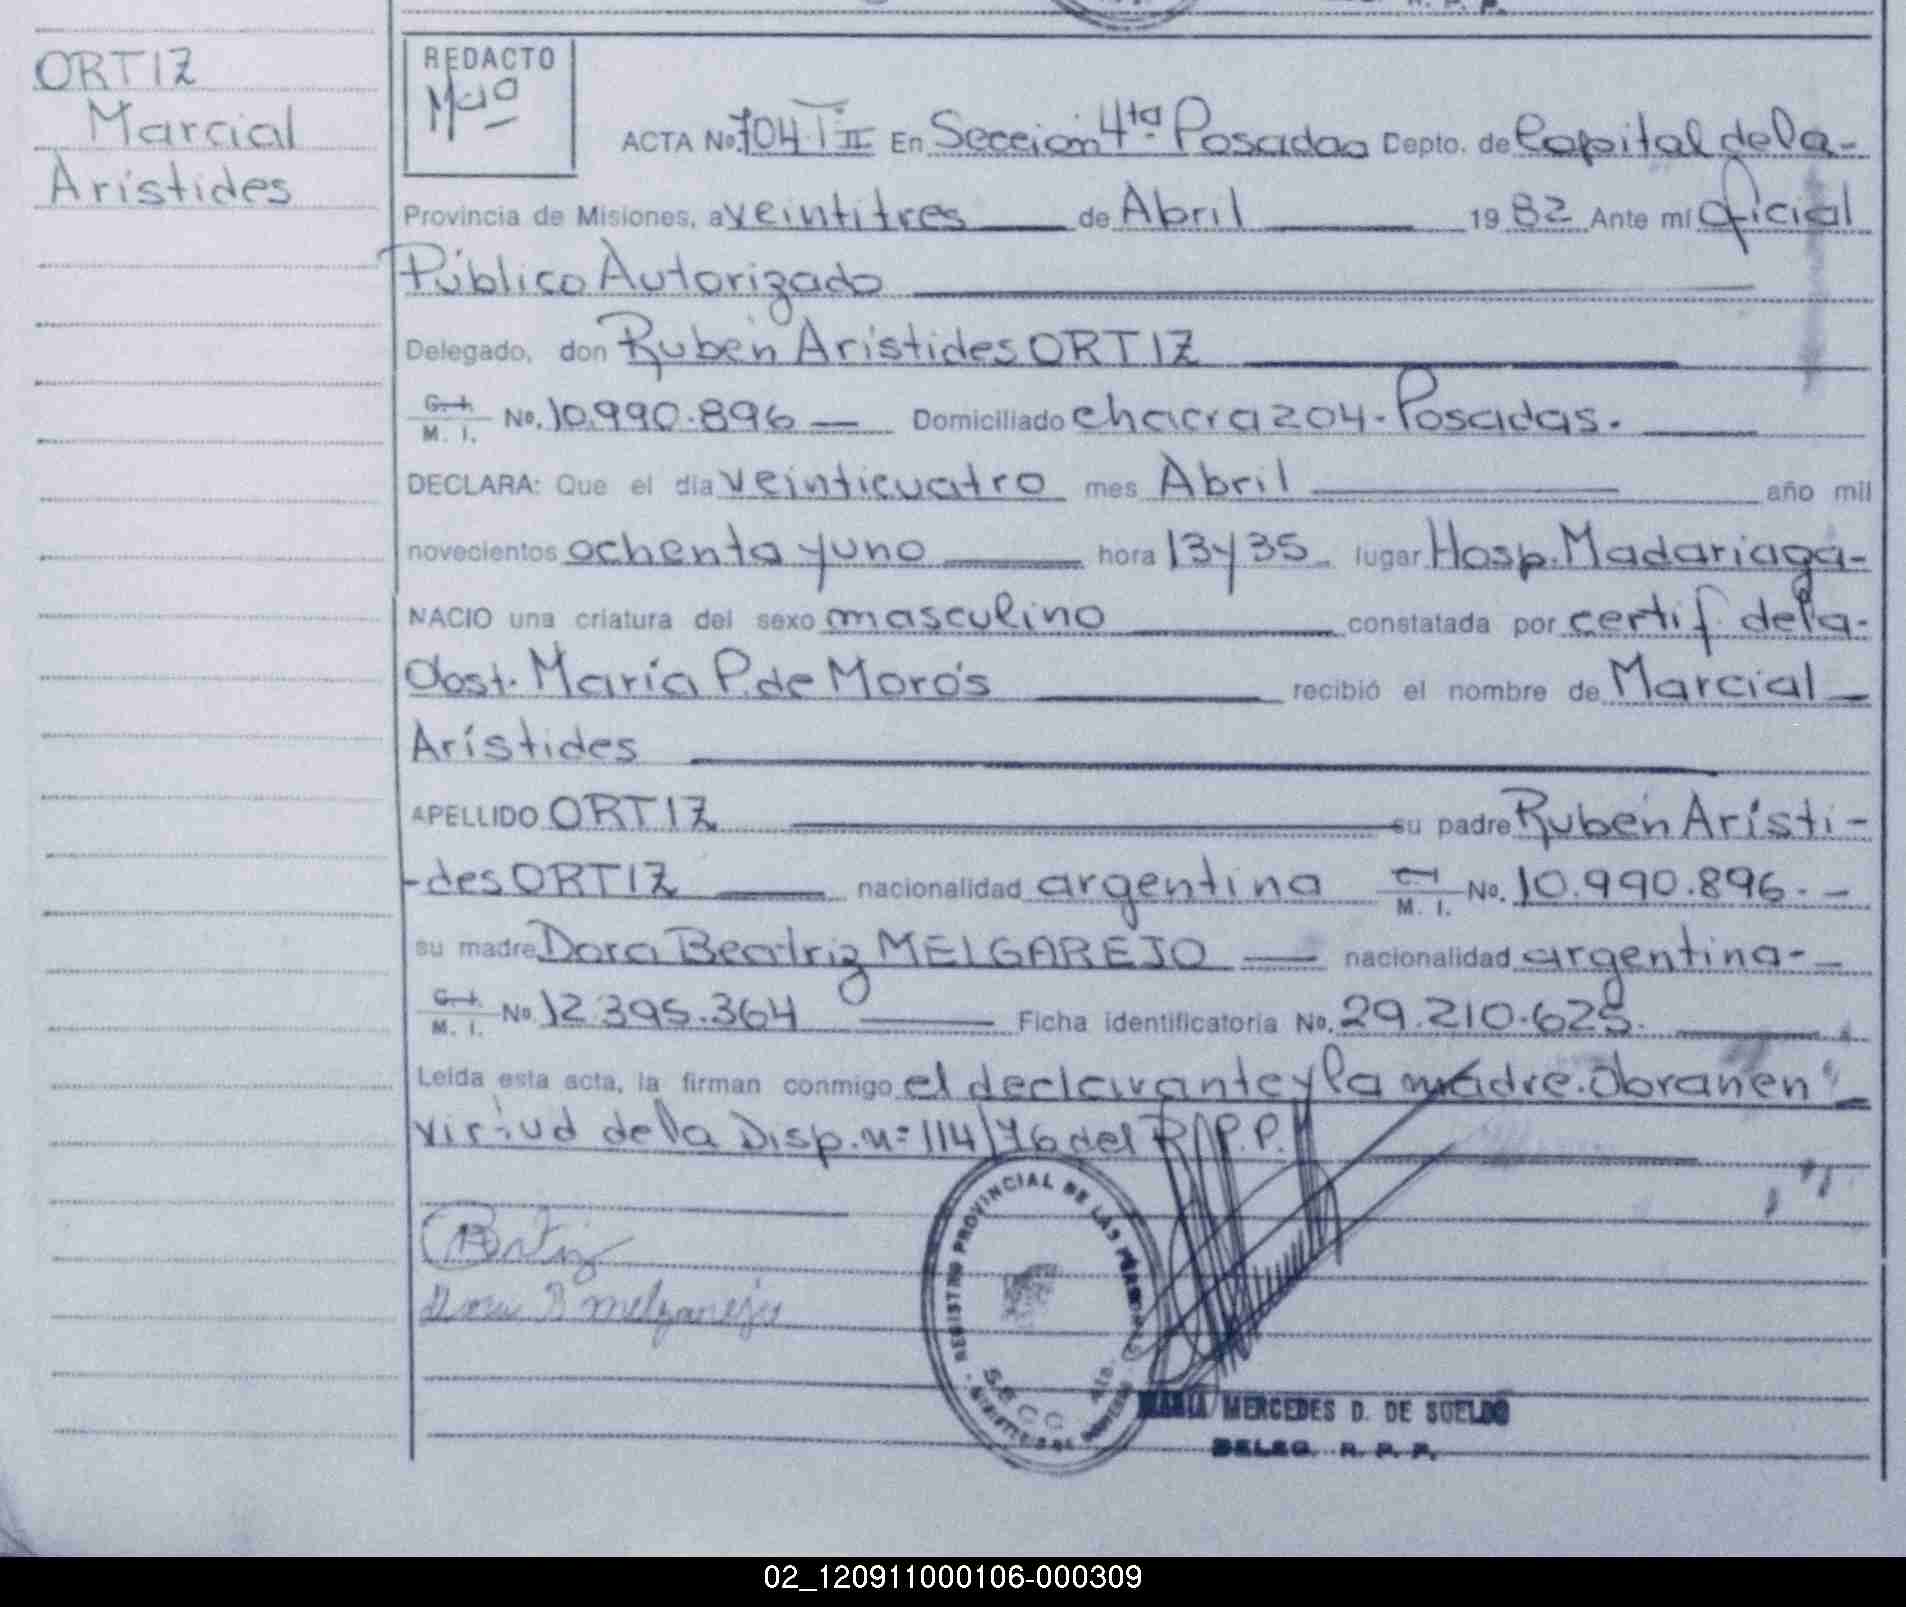 ORTIZ
Marcial
Arístides
REDACTO
ACTA No. 704 T II En Sección 4ta Posadas Depto. de Capital de la-
Provincia de Misiones, a veintitres de Abril 1982 Ante mí Oficial
Público Autorizado
Delegado, don Rubén Arístides ORTIZ
C. I.
M. I. No. 10.990.896 Domiciliado chacra 204-Posadas.
DECLARA: Que el día veinticuatro mes Abril año mil
novecientos ochenta y uno hora 13 y 35 lugar Hosp. Madariaga-
NACIO una criatura del sexo masculino constatada por certif. de la-
Obst. María P. de Morós recibió el nombre de Marcial
Arístides
APELLIDO ORTIZ su padre Rubén Arísti-
-des ORTIZ nacionalidad argentina M. I. No. 10.990.896.-
su madre Dora Beatriz MELGAREJO nacionalidad argentina-
C. I.
M. I. No. 12.395.364 Ficha identificatoria No. 29.210.625.
Leída esta acta, la firman conmigo el declarante y la madre. Obran en
virtud de la Disp. nº 114/76 del R.P.P.
Ortiz
Dora B Melgarejo
REGISTRO PROVINCIAL DE LAS PERSONAS
SECC. 4ta.
MARIA MERCEDES D. DE SUELDO
DELEG. R. P. P.
02_120911000106-000309